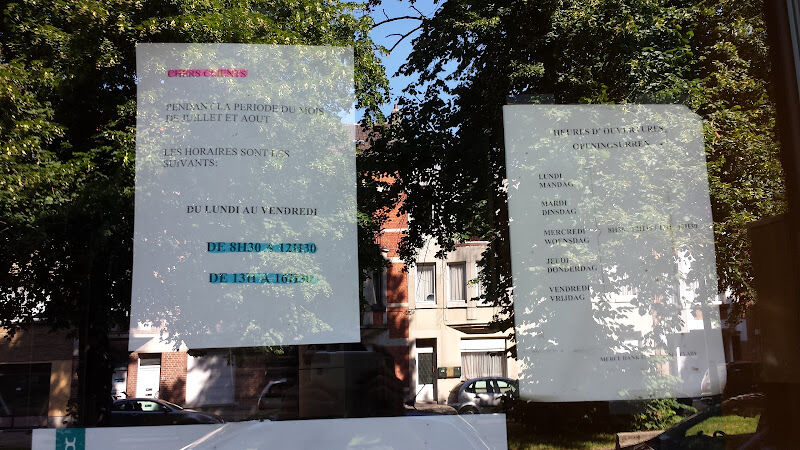 CHERS CLIENTS
PENDANT LA PERIODE DU MOIS
DE JUILLET ET AOUT
LES HORAIRES SONT LES
SUIVANTS:
DU LUNDI AU VENDREDI
DE 8H30 A 12H30
DE 13H A 16H30
HEURES D'OUVERTURES
OPENINGSUREN
LUNDI
MANDAG
MARDI
DINSDAG
MERCREDI
WOENSDAG
JEUDI
DONDERDAG
VENDREDI
VRIJDAG
MERCI